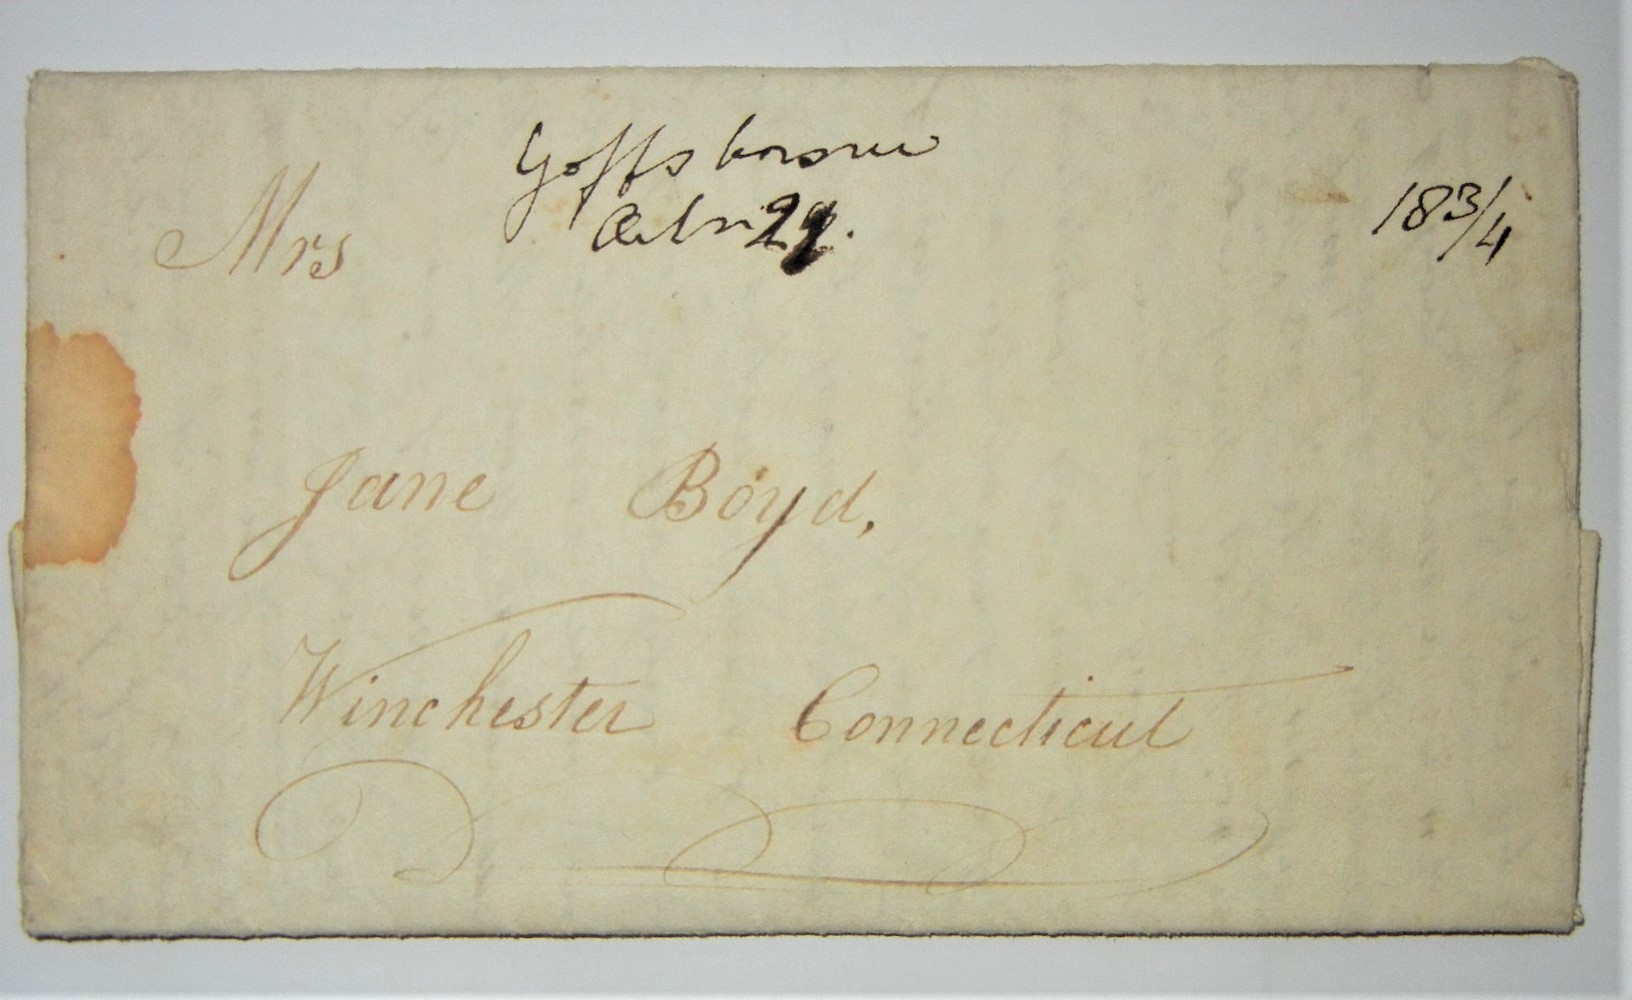 Goffstown
Octr 29.
18 3/4
Mrs
Jane Boyd,
Winchester Connecticut